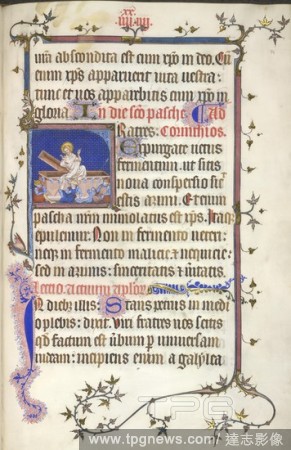 xx
iiii iiii
nr̄a abscondita est cum xp̄o in deo. Cū
enim xp̄s apparuerit uita uestra:
tunc et uos apparebitis cum xp̄o in
gloria. In die sc̄o pasche. Ad
Fratres: Corinthios.
Expurgate uetus
fermentum. ut sitis
noua conspersio sic̄
estis azimi. Etenim
pascha nr̄m immolatus est xp̄s. Itaq̄
epulemur. Non in fermento ueteri:
neq̄ in fermento malicie et nequicie:
sed in azimis: sinceritatis et ueritatis.
Lectio actuum apl̄oꝝ
In dieb; illis: Stans petrus in medi
o plebis: dixit. Viri fratres uos scitis
qd̄ factum est ūbum per uniuersam
iudeam: incipiens enim a galylea
TPG
www.tpgnews.com | 達志影像